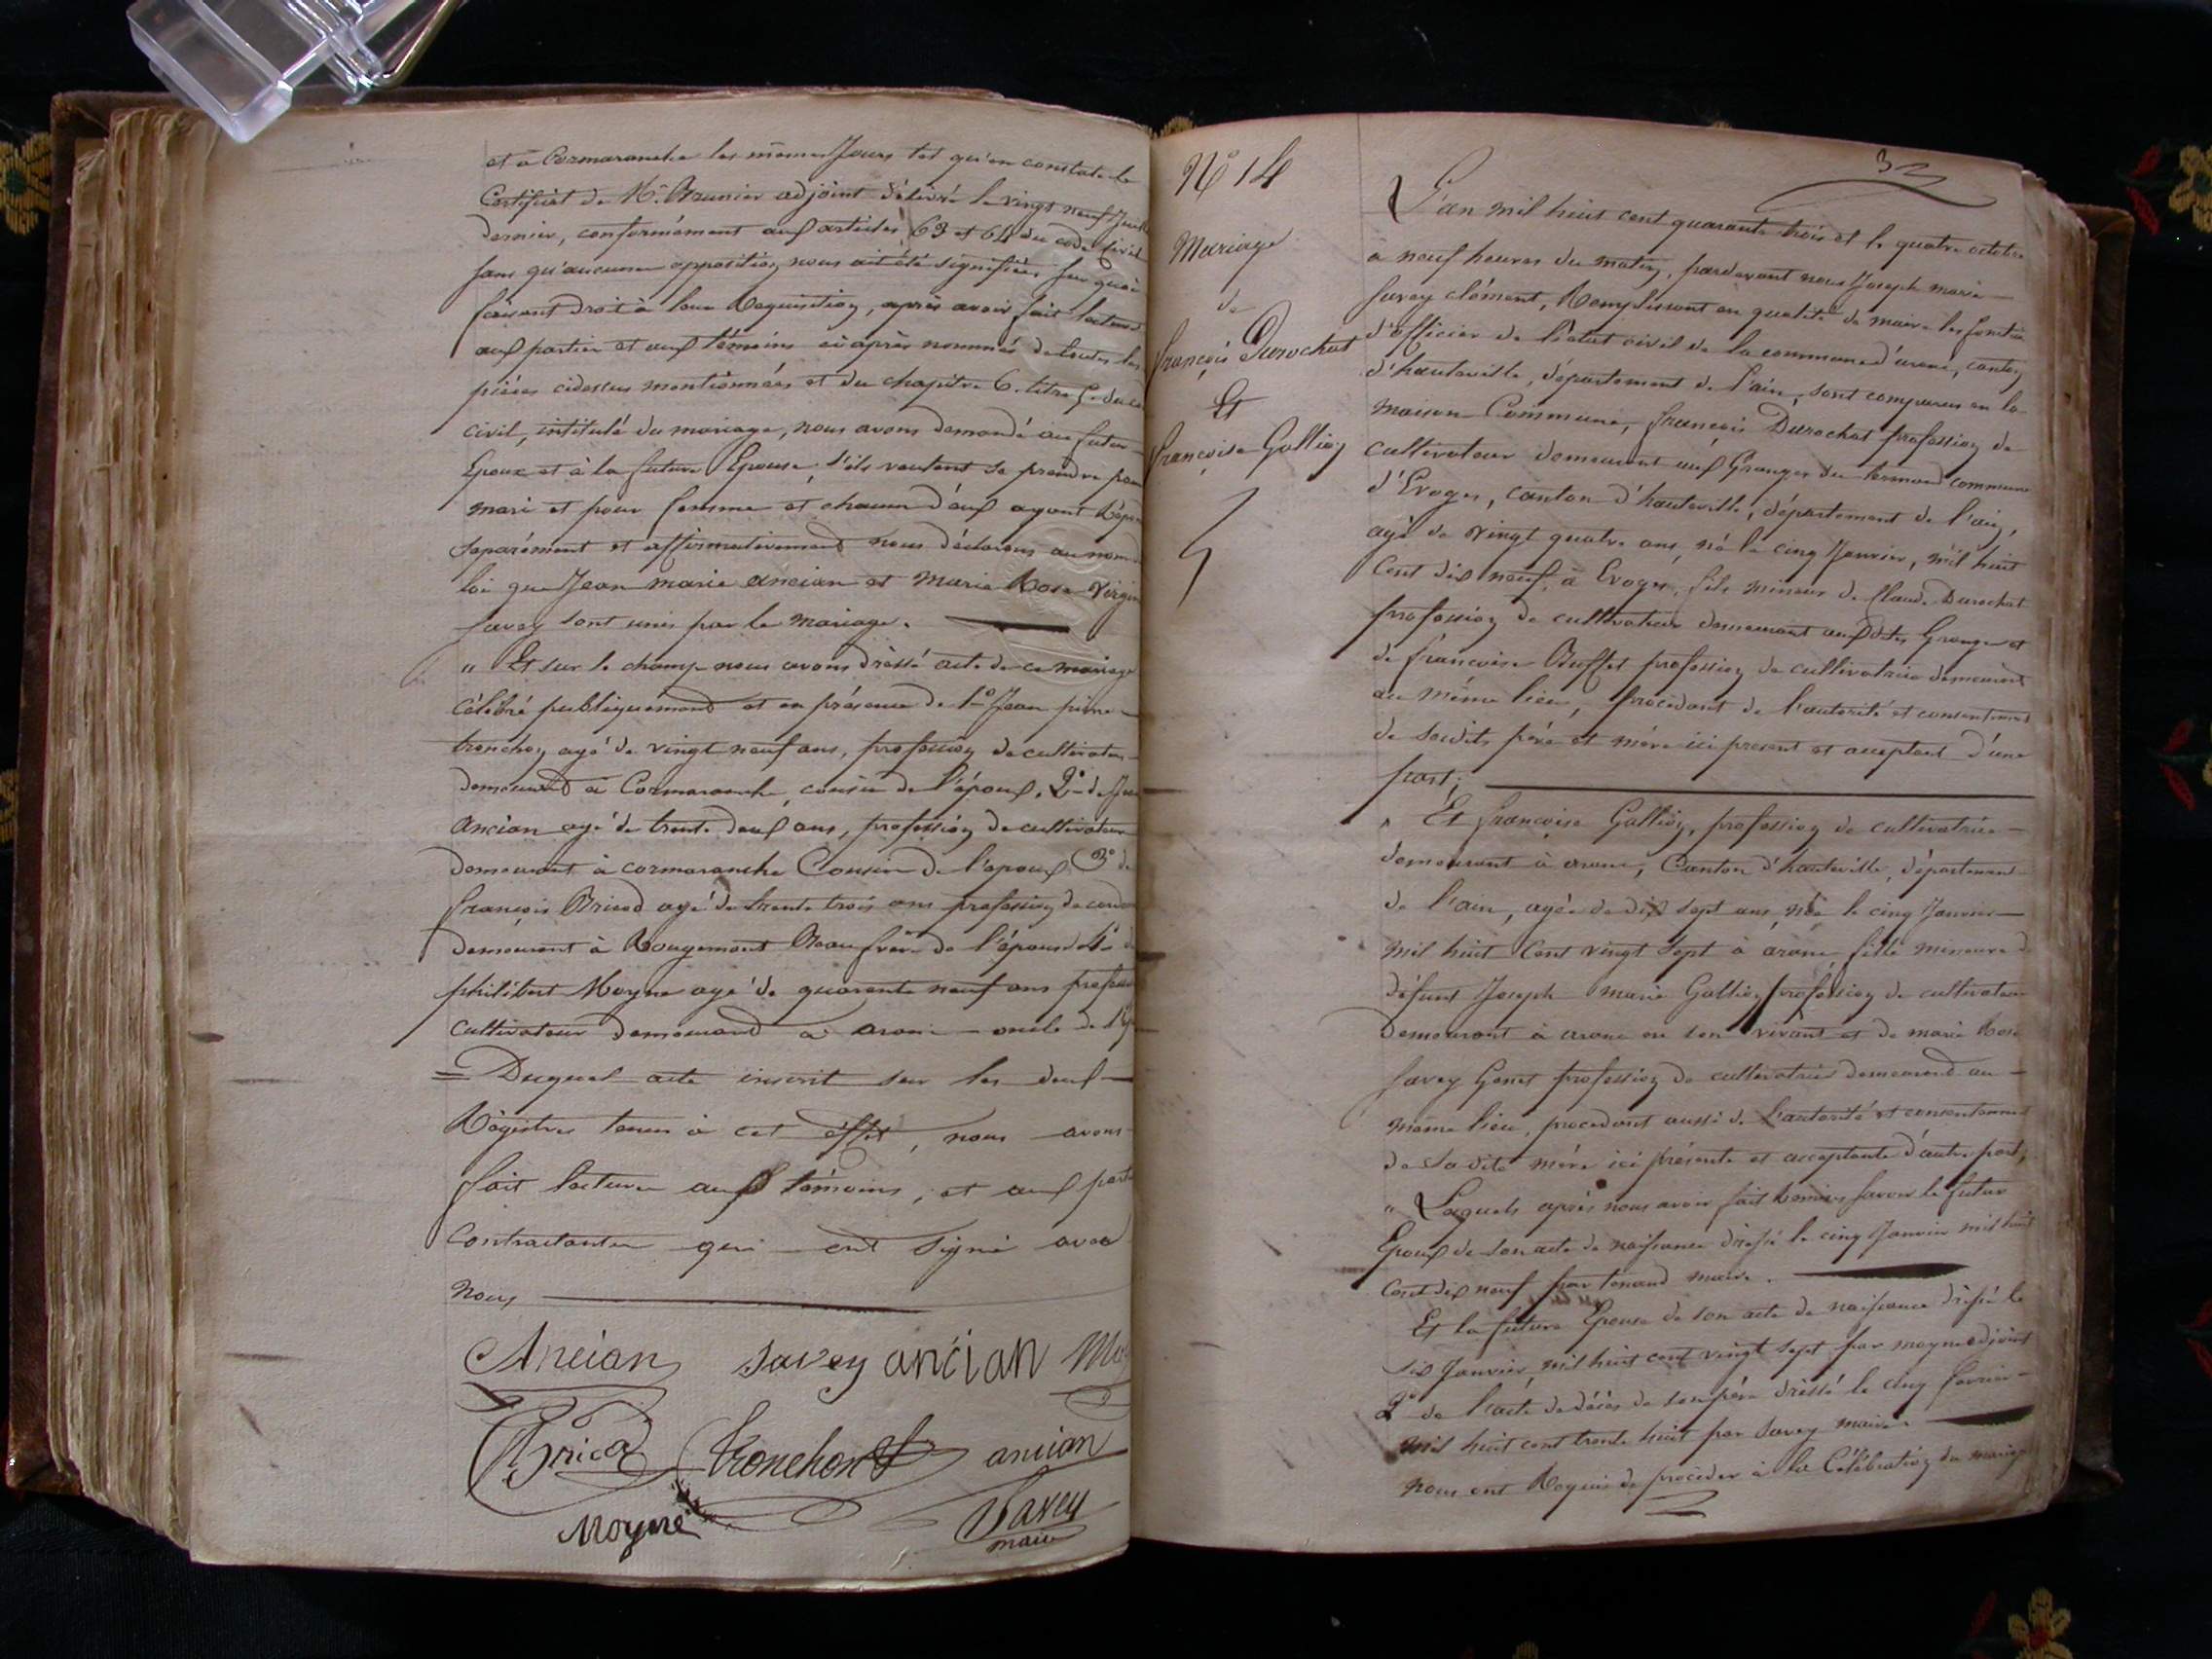 et à Cormaranche les mêmes Jours tel qu'en constate le
Certificat de Mr. Brunier adjoint délivré le vingt neuf Juillet
dernier, conformément aux articles 63 et 64 du code Civil
sans qu'aucune opposition nous ait été signifiée sur quoi
faisant droit à leur Réquisition, après avoir fait lecture
aux parties et aux témoins ci après nommés de toutes les
pièces cidessus mentionnées et du chapitre 6. titre 5. du co
civil, intitulé du mariage, nous avons demandé au futur
Epoux et à la future Epouse, s'ils veulent se prendre pour
mari et pour femme et chacun d'eux ayant Répo
séparément et affirmativement nous déclarons au nom de
loi que Jean marie ancian et Marie Rose Virgin
Savey sont unis par le mariage.
" Et sur le champ nous avons dréssé acte de ce mariage
célébré publiquement et en présence de 1° Jean pierre
tronchon agé de vingt neuf ans, profession de cultivateur
demeurand à Cormaranche, cousin de l'époux, 2° de Jean
Ancian agé de trente deux ans, profession de cultivateur
demeurant à cormaranche Cousin de l'époux 3° de
françois Bricod agé de trente trois ans profession de
demeurant à Rougemont Beau frère de l'épouse 4° de
philibert Moyne agé de quarante neuf ans profession
cultivateur demeurand à aranc oncle de l'Ep
= Duquel acte inscrit sur les deux
Régistres tenus à cet éffet, nous avons
fait lecture aux témoins, et aux parti
Contractantes qui ont signé avec
Nous
Ancian Savey ancian Mo
Bricod tronchon ancian
Moyne Savey
maire
N° 14
Mariage
de
françois Durochat
Et
françoise Gallioz
32
L'an mil huit cent quarante trois et le quatre octobre
à neuf heures du matin, pardevant nous Joseph marie
Savey clément, Remplissant en qualité de maire les fonctions
d'officier de l'état civil de la commune d'aranc, canton
d'hauteville, département de l'ain, sont comparus en la
maison Commune, françois Durochat profession de
cultivateur demeurant aux Granges du commune
d'Evoges, canton d'hauteville, département de l'ain,
agé de vingt quatre ans, né le cinq Janvier, mil huit
Cent dix neuf, à Evoges, fils mineur de Claude Durochat
profession de cultivateur demeurant auxdites Granges et
de françoise Buffet profession de cultivatrice demeurant
au même lieu, procédant de l'autorité et consentement
de sesdits père et mère ici présent et acceptant d'une
part;
" Et françoise Gallioz, profession de cultivatrice
demeurant à aranc, Canton d'hauteville, département
de l'ain, agée de dix sept ans, née le cinq Janvier
mil huit Cent vingt sept à aranc, fille mineure de
défunt Joseph Marie Gallioz profession de cultivateur
demeurant à aranc en son vivant et de marie Rose
Savey Genet profession de cultivatrice demeurand au
même lieu, procédant aussi de l'autorité et consentement
de sa dite mère ici présente et acceptante d'autre part,
" Lesquels après nous avoir fait Remise savoir le futur
Epoux de son acte de naissance dréssé le cinq Janvier mil huit
Cent dix neuf par tenand maire.
Et la future Epouse de son acte de naissance dréssé le
six Janvier, mil huit cent vingt sept par moyne adjoint
2° de l'acte de décès de son père dréssé le cinq février
mil huit cent trente huit par Savey maire
Nous ont Requis de procéder à la Célébration du mariage